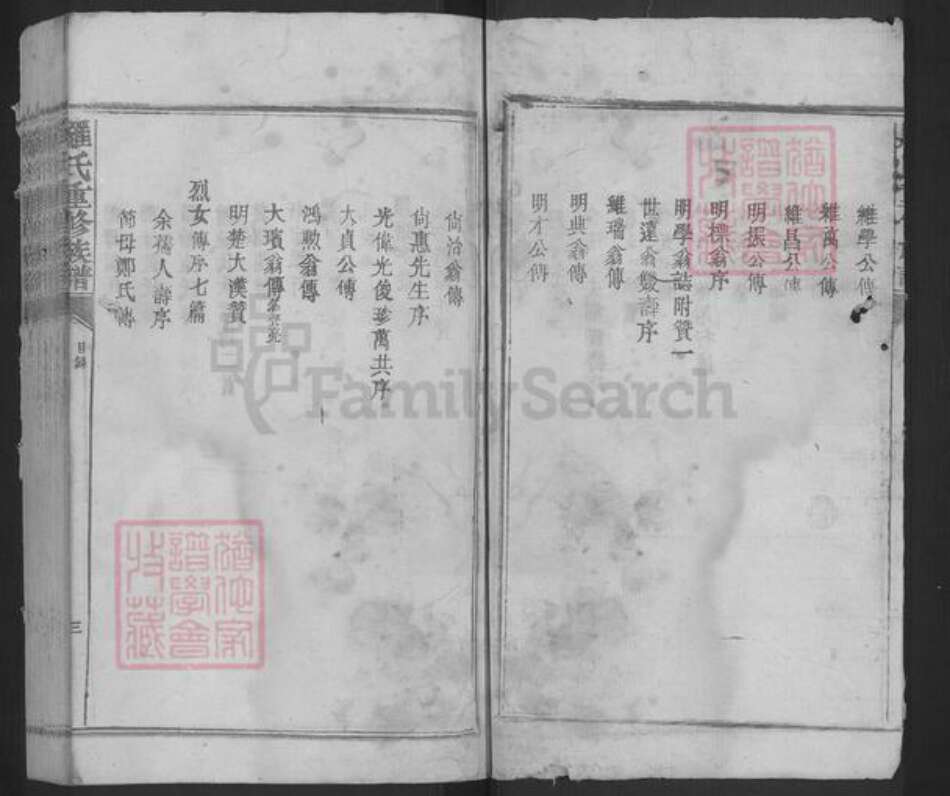 維學公傳
維萬公傳
維昌公傳
明振公傳
明標翁序
明學翁誌附贊一
世遠翁雙壽序
維瑞翁傳
明典翁傳
明才公傳
尙治翁傳
尙惠先生序
光偉光俊珍萬共序
大貞公傳
鴻勲翁傳
大璸翁傳
明楚大漢贊
烈女傳序七篇
余孺人壽序
節母鄭氏傳
羅氏重修族譜
目錄
三
譜學會
FamilySearch